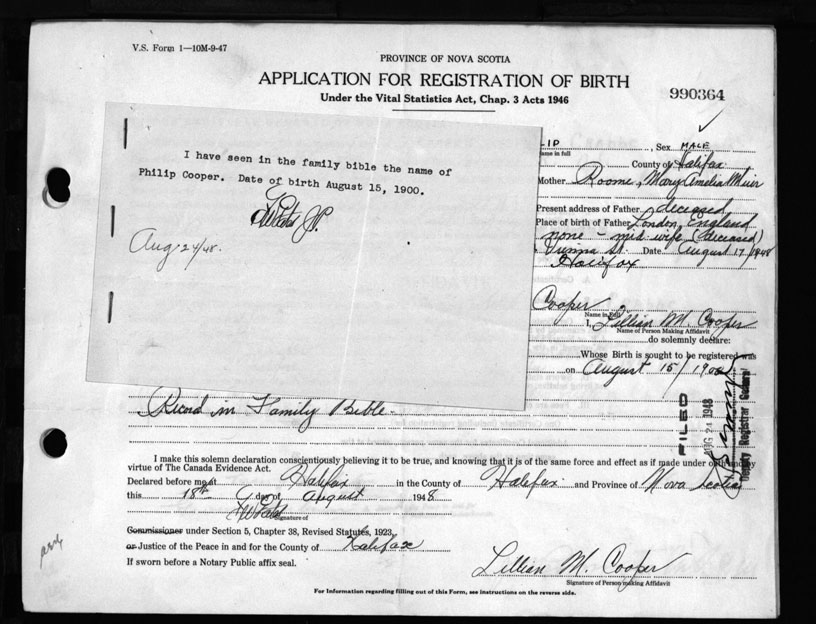 V.S. Form 1—10M-9-47
PROVINCE OF NOVA SCOTIA
APPLICATION FOR REGISTRATION OF BIRTH
Under the Vital Statistics Act, Chap. 3 Acts 1946
990364
I have seen in the family bible the name of
Philip Cooper. Date of birth August 15, 1900.
J.P.
Aug 24/48.
LIP, Sex MALE
ame in full
County of Halifax
Mother Roome, Mary Amelia Muir
Present address of Father deceased
Place of birth of Father London, England
none - mid wife (deceased)
St. Date August 17/1948
Halifax
Cooper
Name in Full
I, Lillian M. Cooper
Name of Person Making Affidavit
do solemnly declare:
Whose Birth is sought to be registered was
on August 15/1900
Record in Family Bible.
FILED
AUG 24 1948
Deputy Registrar General
I make this solemn declaration conscientiously believing it to be true, and knowing that it is of the same force and effect as if made under oath and by
virtue of The Canada Evidence Act.
Declared before me at Halifax in the County of Halifax and Province of Nova Scotia
this 18th day of August 1948
Signature of
Commissioner under Section 5, Chapter 38, Revised Statutes, 1923,
or Justice of the Peace in and for the County of Halifax
If sworn before a Notary Public affix seal.
Lillian M. Cooper
Signature of Person making Affidavit
For Information regarding filling out of this Form, see instructions on the reverse side.